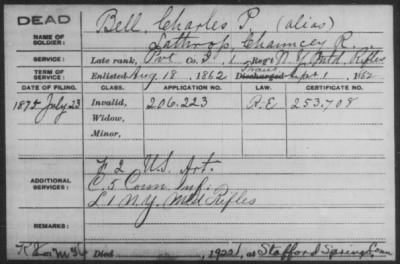 DEAD
NAME OF SOLDIER:
Bell, Charles P. (alias)
Lathrop, Chauncey R.
SERVICE:
Late rank, Pvt Co. I, 1 Reg't N.Y. Mtd. Rifles
TERM OF SERVICE:
Enlisted Aug 18, 1862 Discharged Sept 1, 1862
DATE OF FILING. CLASS. APPLICATION NO. LAW. CERTIFICATE NO.
1875 July 23 Invalid, 206.223 253.708
Widow,
Minor,
ADDITIONAL SERVICES:
F 2 U.S. Art.
C. 5 Conn Inf.
L 1 N.Y. Mtd Rifles
REMARKS:
Died , 192 , at Stafford Springs, Conn